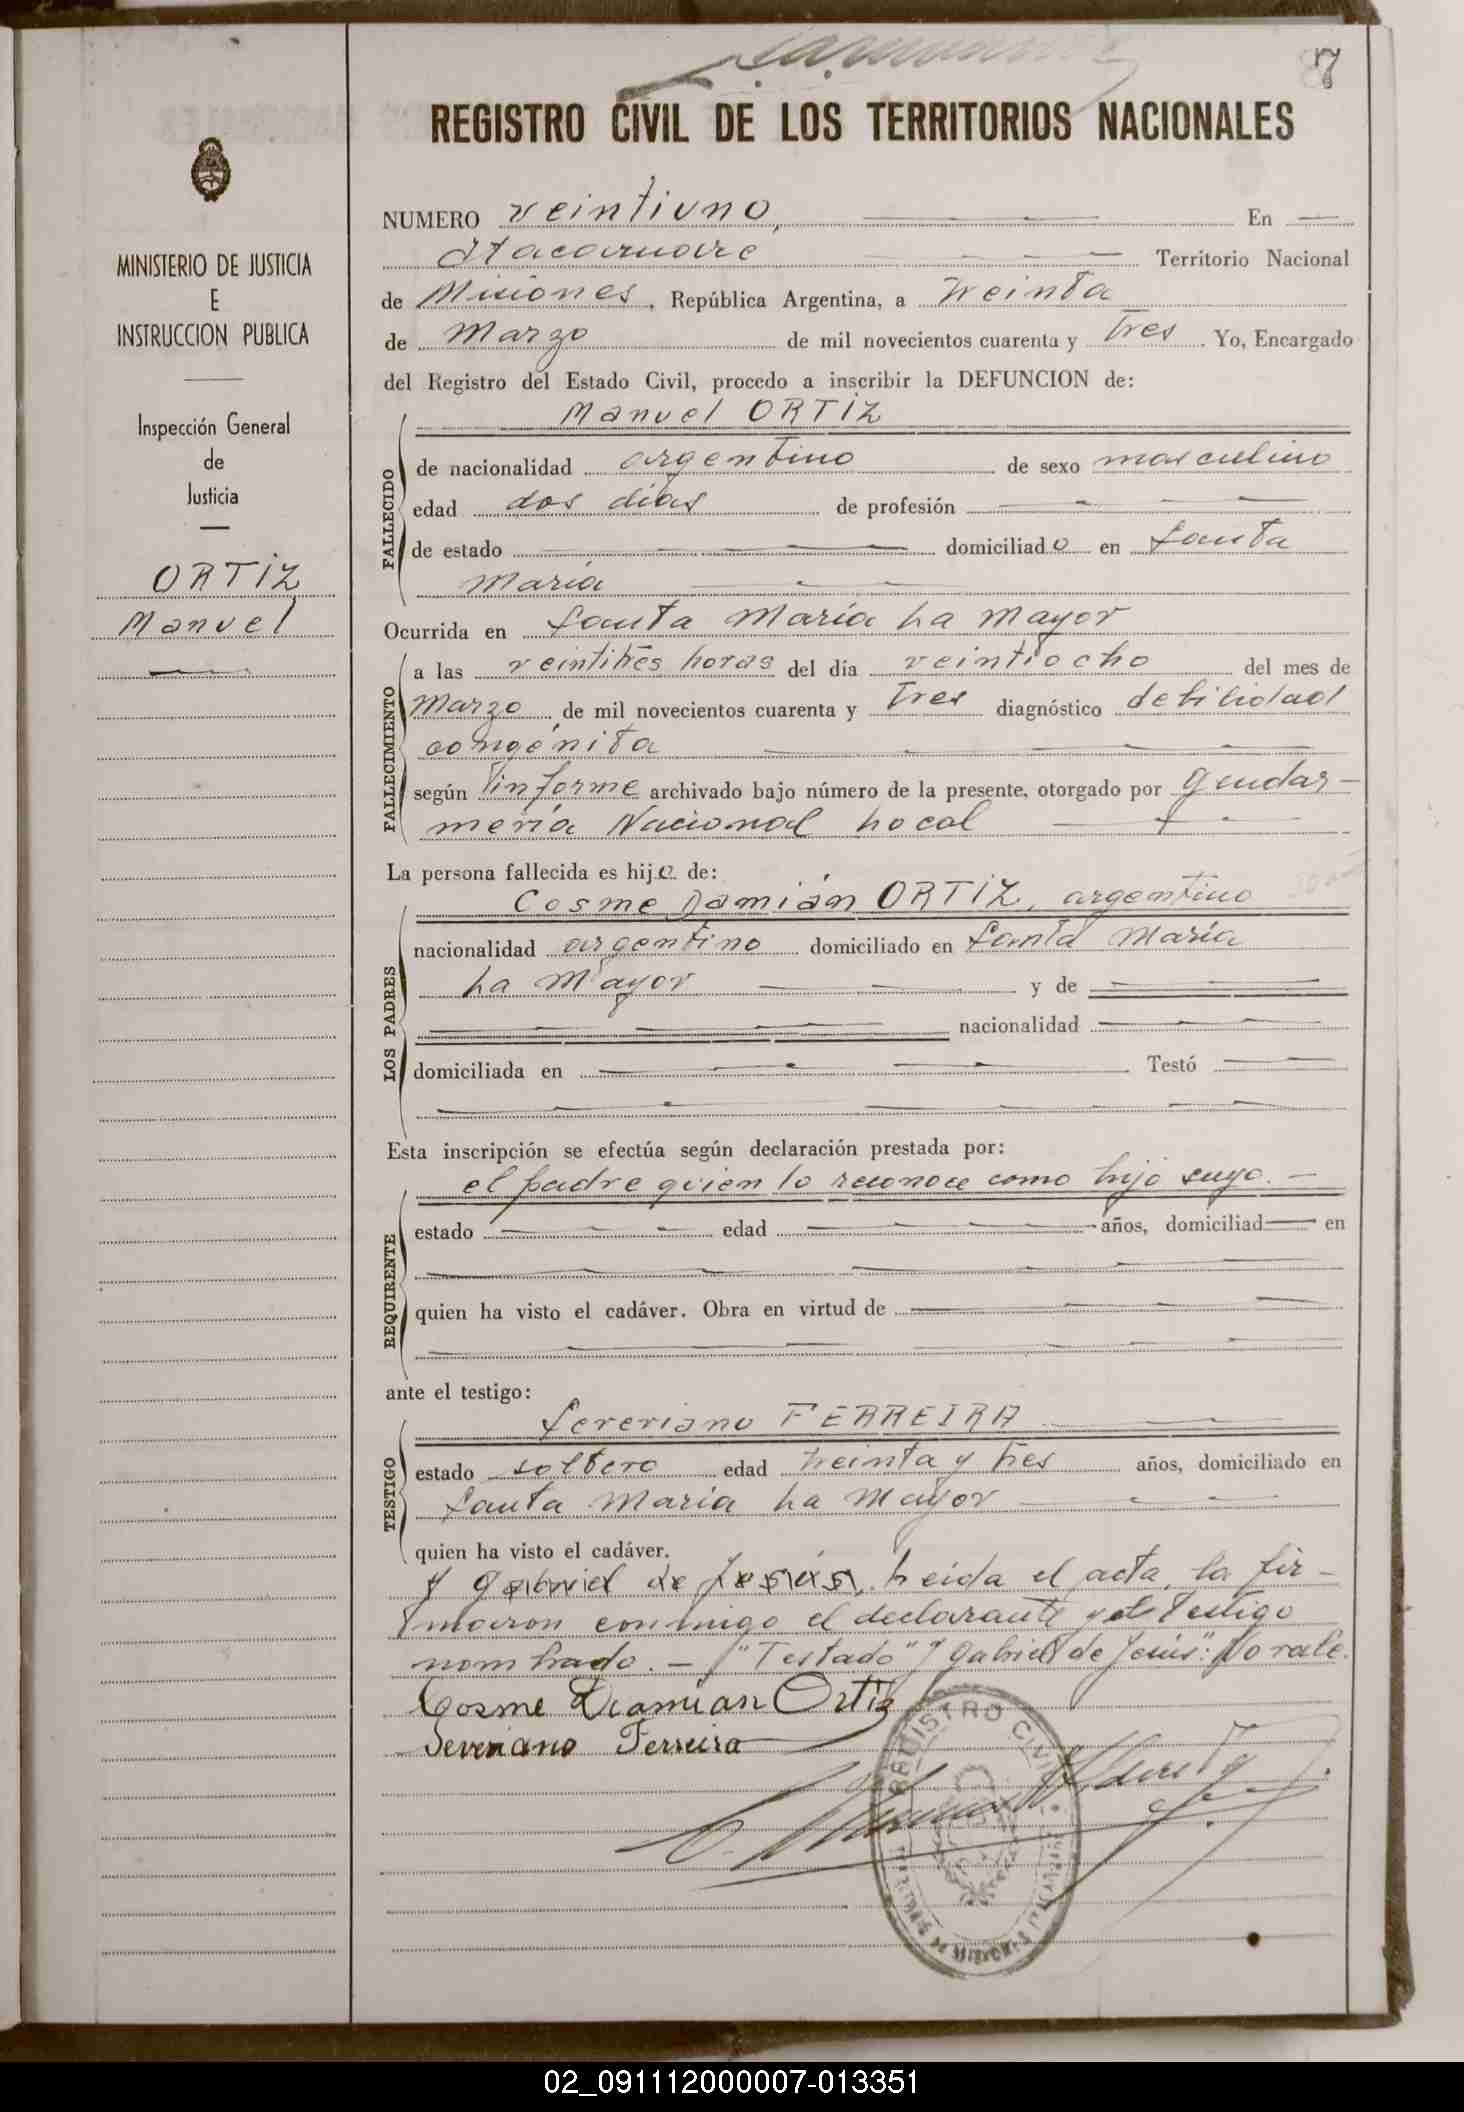 7
REGISTRO CIVIL DE LOS TERRITORIOS NACIONALES
MINISTERIO DE JUSTICIA
E
INSTRUCCION PUBLICA
Inspección General
de
Justicia
ORTIZ
Manuel
NUMERO veintiuno, En
Itacaruare Territorio Nacional
de Misiones, República Argentina, a treinta
de Marzo de mil novecientos cuarenta y tres. Yo, Encargado
del Registro del Estado Civil, procedo a inscribir la DEFUNCION de:
Manuel ORTIZ
FALLECIDO
de nacionalidad argentino de sexo masculino
edad dos días de profesión
de estado domiciliado en Santa
María
Ocurrida en Santa María La Mayor
FALLECIMIENTO
a las veintitrés horas del día veintiocho del mes de
Marzo de mil novecientos cuarenta y tres diagnóstico debilidad
congénita
según informe archivado bajo número de la presente, otorgado por Gendar-
mería Nacional Local
La persona fallecida es hijo de:
LOS PADRES
Cosme Damián ORTIZ, argentino
nacionalidad argentino domiciliado en Santa María
La Mayor y de
nacionalidad
domiciliada en Testó
Esta inscripción se efectúa según declaración prestada por:
REQUIRENTE
el padre quien lo reconoce como hijo suyo.-
estado edad años, domiciliad en
quien ha visto el cadáver. Obra en virtud de
ante el testigo:
TESTIGO
Severiano FERREIRA
estado soltero edad treinta y tres años, domiciliado en
Santa María La Mayor
quien ha visto el cadáver.
y Gabriel de Jesús, Leida el acta, la fir-
maron conmigo el declarante y el testigo
nombrado.- "Testado" y Gabriel de Jesús": No vale.
Cosme Damian Ortiz
Severiano Ferreira
REGISTRO CIVIL
02_091112000007-013351